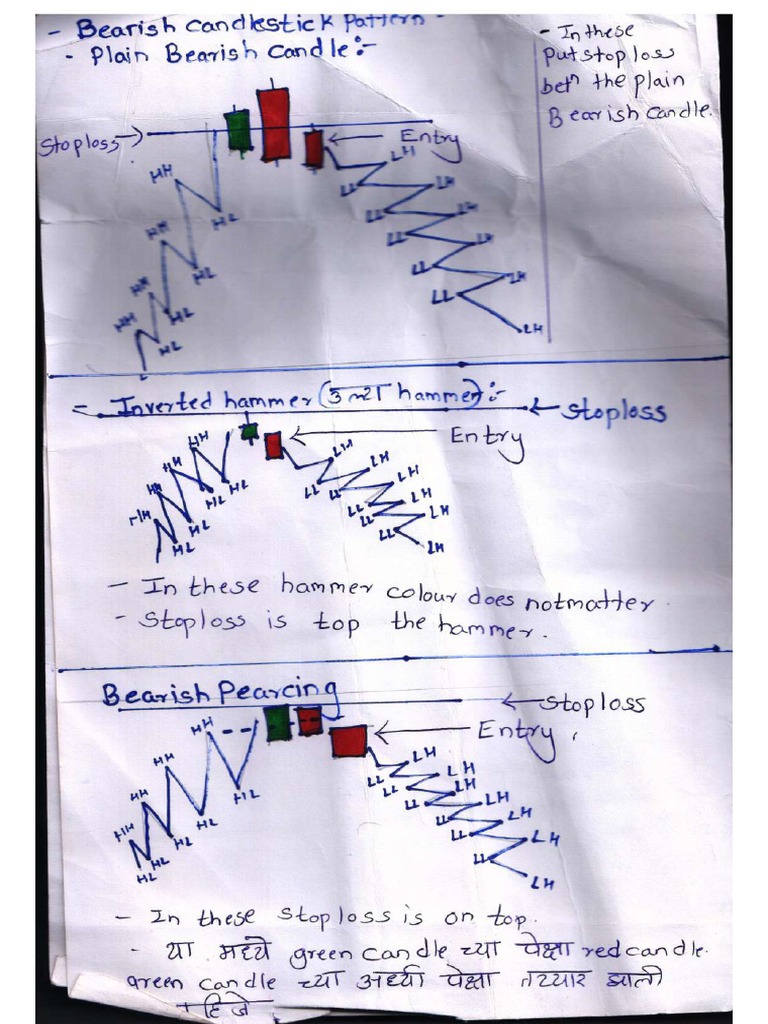 - Bearish candlestick Pattern -
- Plain Bearish Candle:-
- In these
Put stop loss
betn the plain
Bearish candle.
Stoploss →
← Entry
HH
HL
HH
HL
HH
HL
HH
HL
L
LH
LL
LH
LL
LH
LL
LH
LL
LH
LL
LH
= Inverted hammer (उल्टा hammer):-
← Stoploss
← Entry
HH
HH
HH
HH
HL
HL
HL
HL
LH
LH
LH
LH
LH
LH
LL
LL
LL
LL
LL
- In these hammer colour does not matter.
- Stoploss is top the hammer.
Bearish Pearcing
← Stoploss
← Entry,
HH
HH
HH
HH
HL
HL
HL
HL
HL
LH
LH
LH
LH
LH
LH
LH
LL
LL
LL
LL
LL
LL
LL
- In these stoploss is on top.
- या मध्ये green candle च्या पेक्षा red candle.
green candle च्या अर्ध्या पेक्षा तय्यार झाली